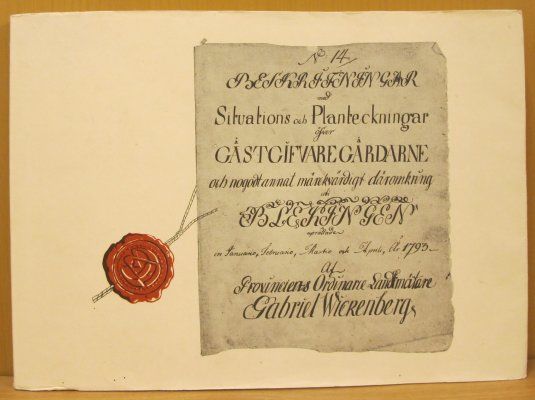 No. 14.
BESKRIFNINGAR
med
Situations och Planteckningar
öfver
GÄSTGIFVAREGÅRDARNE
och nogodt annat märckvärdigt däromkring
uti
BLEKINGEN
uprättade
en Januario, Februario, Martio och Aprili, År 1793.
Af
Provinciens Ordinarie Landtmätare
Gabriel Wierenberg.